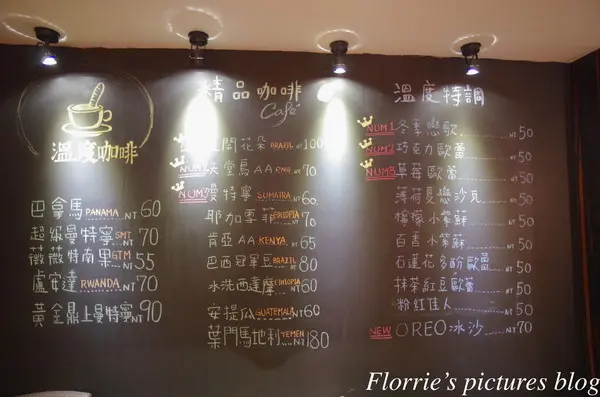 溫度咖啡
巴拿馬 PANAMA NT 60
超級曼特寧 SMT NT 70
薇薇特南果 GTM NT 55
盧安達 RWANDA NT 70
黃金鼎上曼特寧 NT 90
精品咖啡
Café
花朵 BRAZIL NT 100
天堂鳥AA NT 70
NO.3 曼特寧 SUMATRA NT 60
耶加雪菲 ETHIOPIA NT 70
肯亞AA KENYA NT 65
巴西冠軍豆 BRAZIL NT 80
水洗西達摩 ETHIOPIA NT 60
安提瓜 GUATEMALA NT 60
葉門馬地利 YEMEN NT 180
溫度特調
NO.1 冬季戀歌 NT 50
NO.2 巧克力歐蕾 NT 50
NO.3 草莓歐蕾 NT 50
薄荷憂戀沙瓦 NT 50
檸檬小紫蘇 NT 50
百香小紫蘇 NT 50
石蓮花多酚歐蕾 NT 50
抹茶紅豆歐蕾 NT 50
粉紅佳人 NT 50
NEW OREO冰沙 NT 70
Florrie's pictures blog